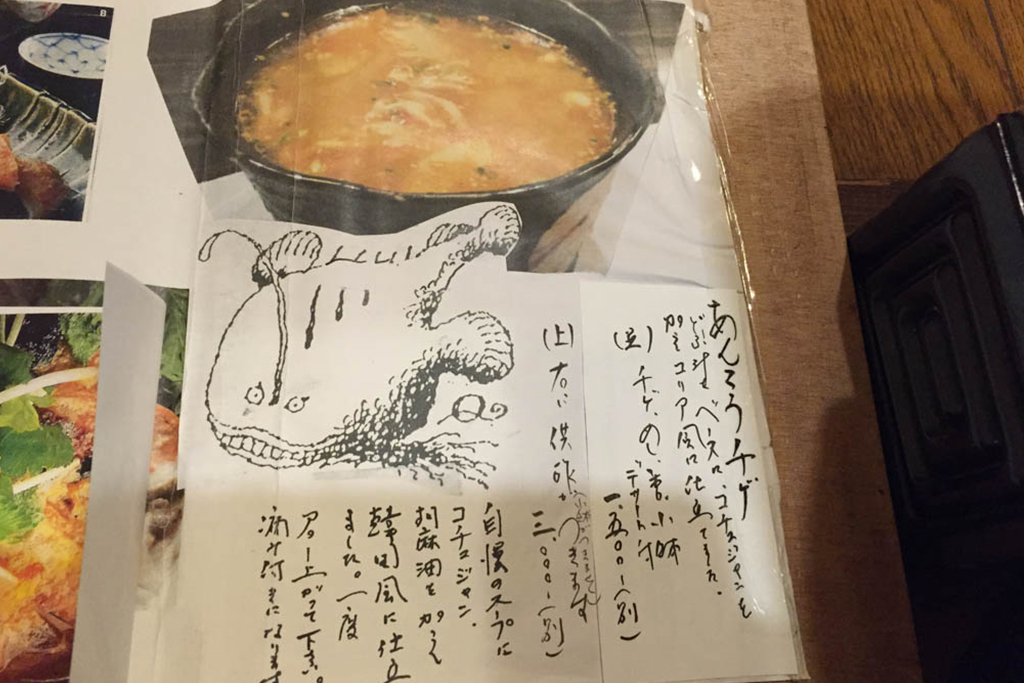 あんこうチゲ
どぶ汁をベースにコチュジャンを
加えコリア風に仕立てました。
(並)チゲ、めし、香、小鉢
デザート付
一、五〇〇-(別)
(上)右に供酢
つきます
三、〇〇〇-(別)
自慢のスープに
コチュジャン、
胡麻油を加え
韓国風に仕立
ました。一度
召し上がって下さい。
病み付きになります
8